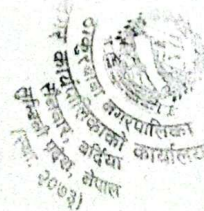 ठाकुरबाबा नगरपालिका
नगर कार्यपालिकाको कार्यालय
सैनवार, बर्दिया
लुम्बिनी प्रदेश, नेपाल
स्था. २०७३